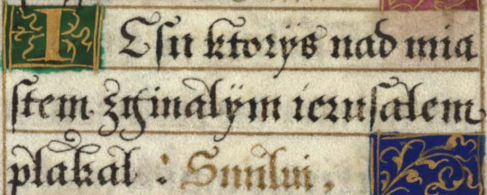 IEſu ktorÿs nad mia
ſtem zginalÿm ieruſalem
plakal : Smilui,